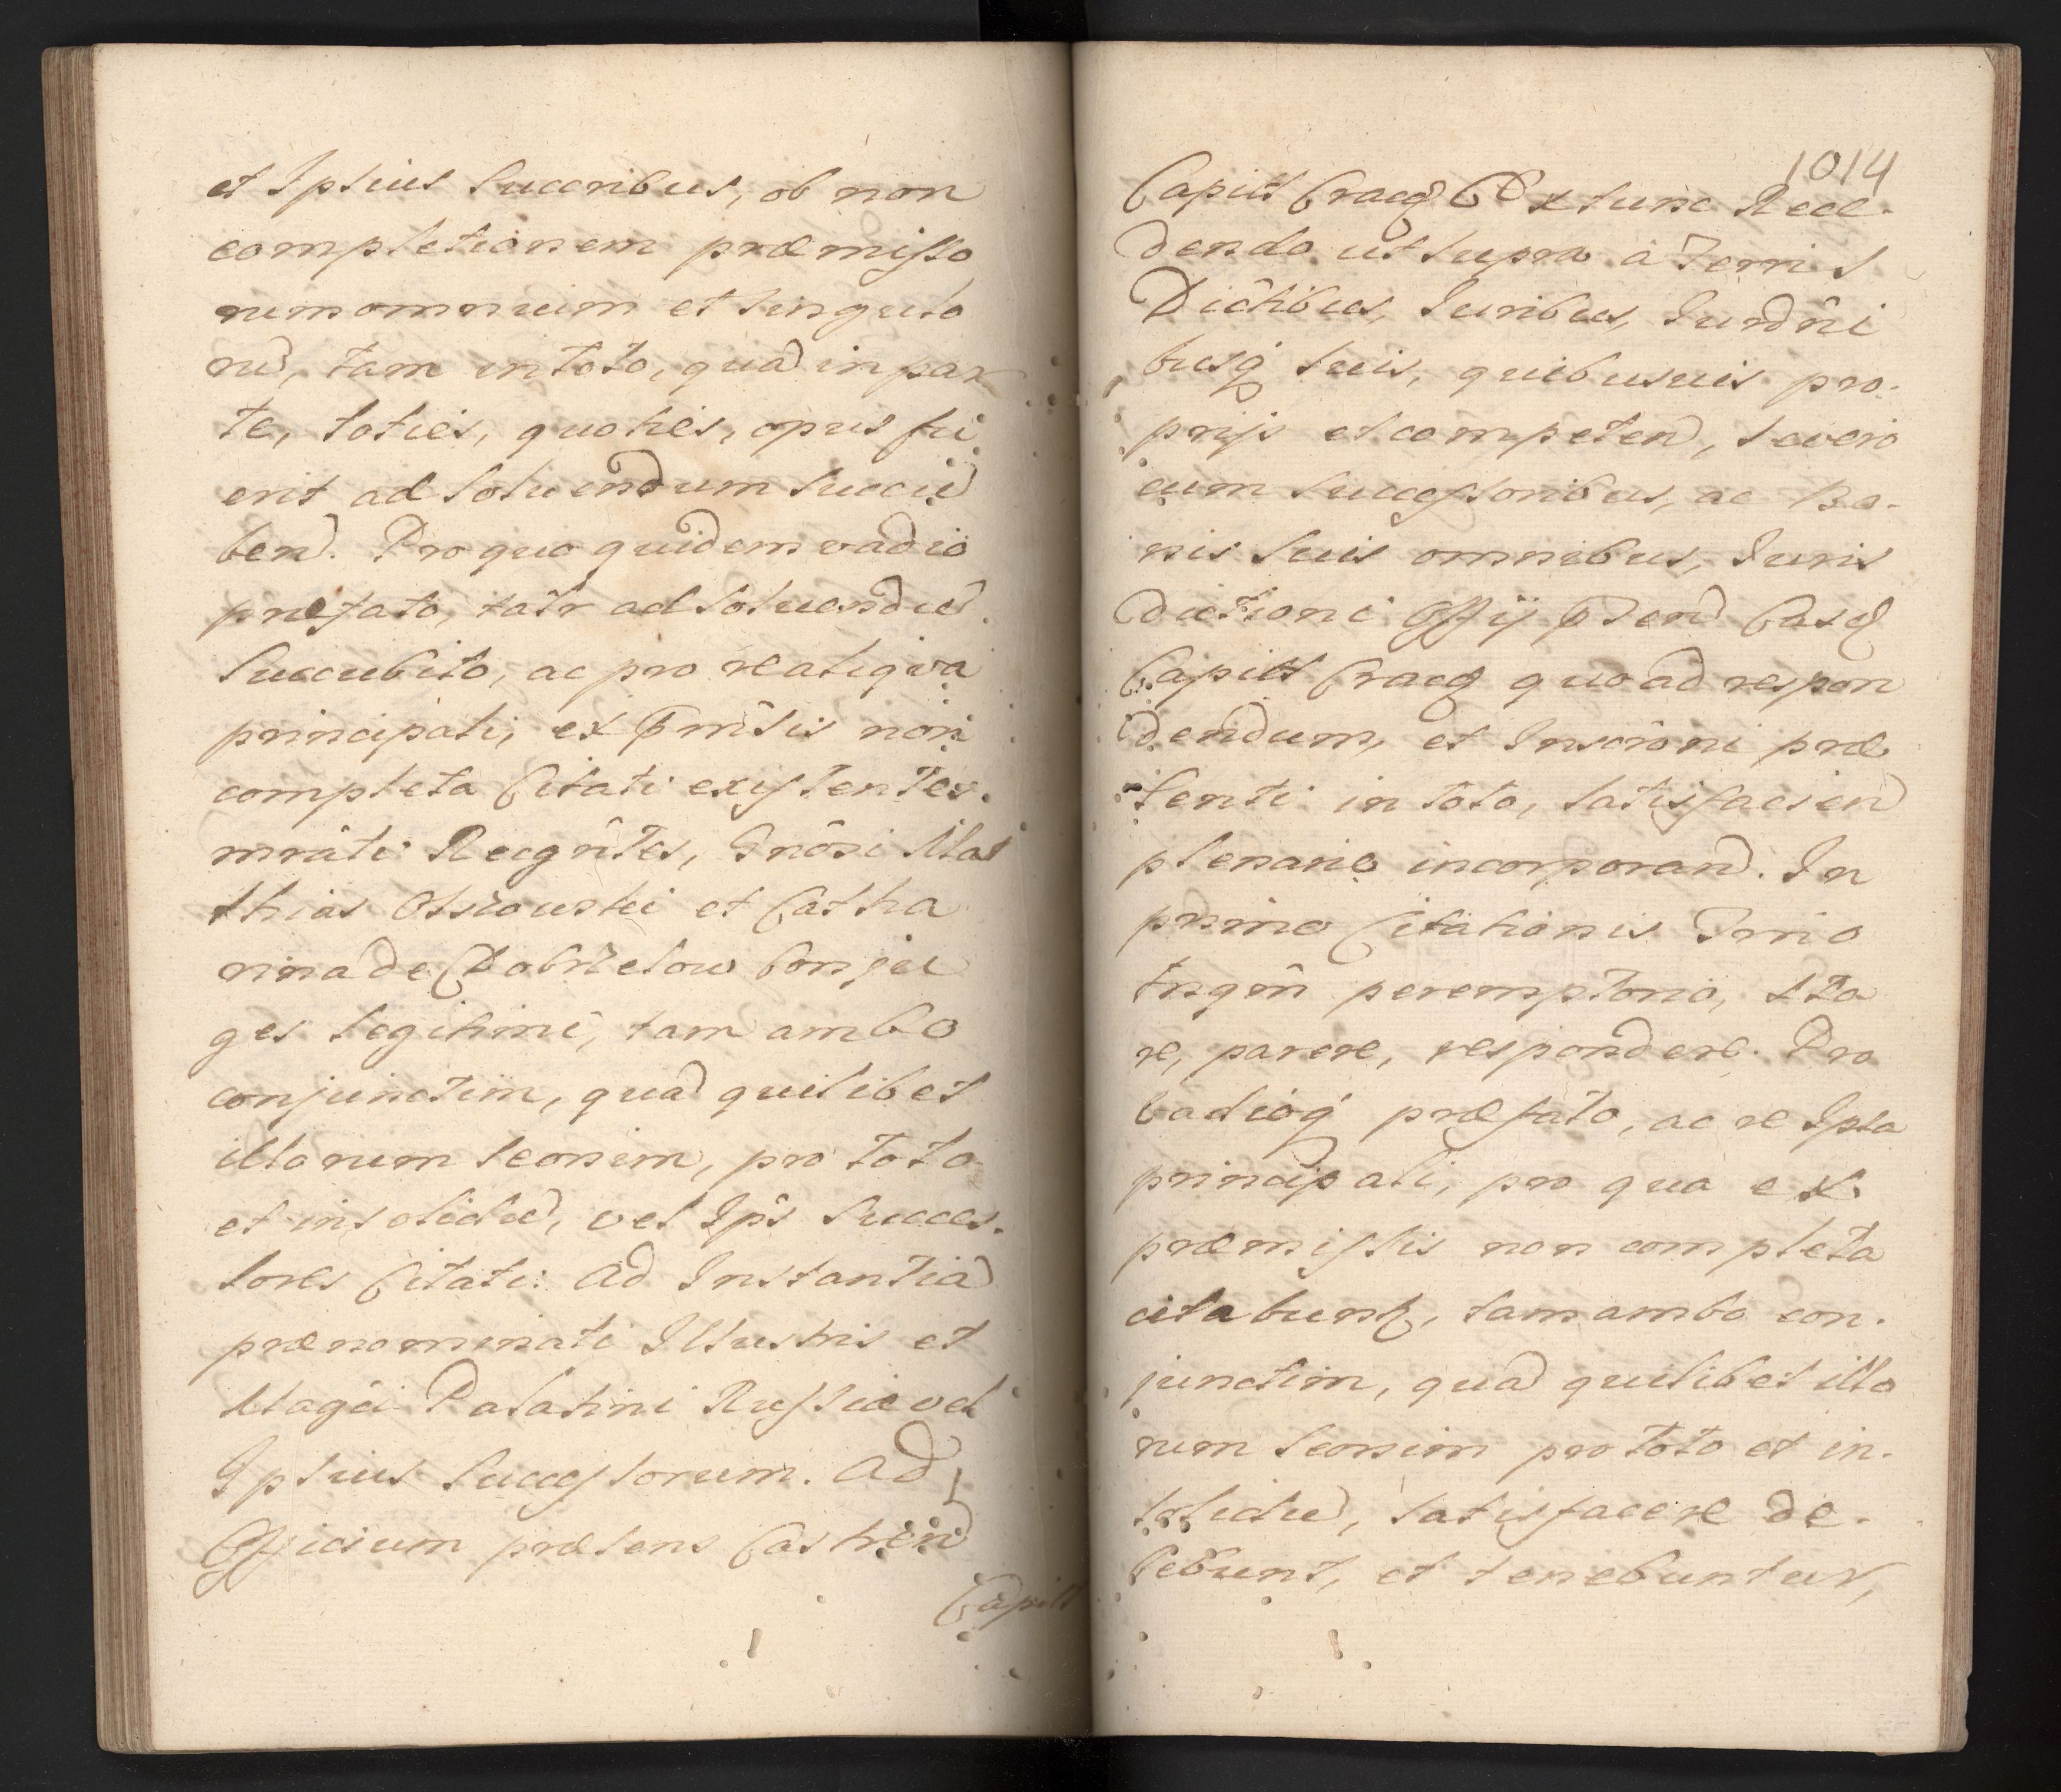 et Ipsius Succribus, ob non
completionem præmisso
rum omnium et singulo
rũ, tam in toto, quã in par
te, toties, quoties, opus fu
erit ad solvendum succũ
ben. Pro quo quidem vadio
præfato, talr ad solvendũ
succubito, ac pro re aliqva
principali, ex pmisis non
completa Citati existentes.
mrati Recgntes, Gnosi Mat
thias Ossowski et Catha
rina de Dobrzelow Conju
ges legitimi, tam ambo
conjunctim, quã quilibet
illorum seorsim, pro toto
et insolidũ, vel Ips Succes.
sores Citati: Ad Instantiã
prænominati Illustris et
Magci Palatini Russiæ vel
Ipsius Successorum. Ad
Officium præsens Castren
Capitt
1014
Capitt Cracq Extunc Rece.
dendo ut supra a Terris
Dictibus, Juribus, Jurdni
busq suis, quibusuis pro.
prijs et competen, se vero
cum successoribus, ac Bo.
nis suis omnibus, Juris
dictioni Offij pnsen Casq
Capitt Cracq quo ad respon
dendum, et Inscroni præ
senti in toto, satisfacien
plenarie incorporan. In
primo Citationis Trno
tnqm peremptorio, sta
re, parere, respondere. Pro
vadioq præfato, ac re Ipsa
principali, pro qua ex
præmissis non completa
citabunt, tam ambo con.
junctim, quã quilibet illo
rum seorsim pro toto et in.
solidũ, satisfacere de.
bebunt, et tenebuntur,